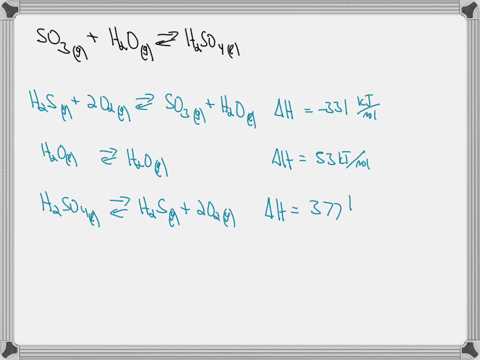 SO₃(g) + H₂O(g) ⇌ H₂SO₄(l)
H₂S(g) + 2O₂(g) ⇌ SO₃(g) + H₂O(g) ΔH = -331 kJ/mol
H₂O(g) ⇌ H₂O(g) ΔH = 53 kJ/mol
H₂SO₄(l) ⇌ H₂S(g) + 2O₂(g) ΔH = 377